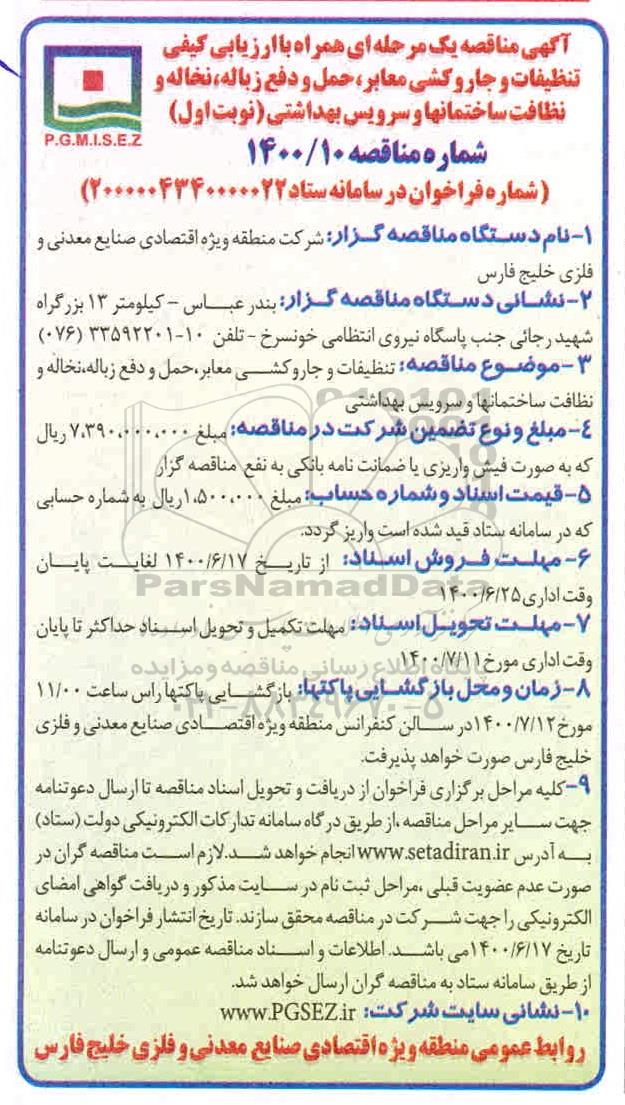 آگهی مناقصه یک مرحله ای همراه با ارزیابی کیفی
تنظیفات و جاروکشی معابر، حمل و دفع زباله، نخاله و
نظافت ساختمانها و سرویس بهداشتی (نوبت اول)
P.G.M.I.S.E.Z
شماره مناقصه ۱۴۰۰/۱۰
(شماره فراخوان در سامانه ستاد ۲۰۰۰۰۰۴۳۴۰۰۰۰۰۲۲)
۱-نام دستگاه مناقصه گزار: شرکت منطقه ویژه اقتصادی صنایع معدنی و
فلزی خلیج فارس
۲-نشانی دستگاه مناقصه گزار: بندر عباس – کیلومتر ۱۳ بزرگراه
شهید رجائی جنب پاسگاه نیروی انتظامی خونسرخ - تلفن ۱۰-۳۳۵۹۲۲۰۱ (۰۷۶)
۳-موضوع مناقصه: تنظیفات و جاروکشی معابر،حمل و دفع زباله،نخاله و
نظافت ساختمانها و سرویس بهداشتی
۴-مبلغ و نوع تضمین شرکت در مناقصه: مبلغ ۷،۳۹۰،۰۰۰،۰۰۰ ریال
که به صورت فیش واریزی یا ضمانت نامه بانکی به نفع مناقصه گزار
۵-قیمت اسناد و شماره حساب: مبلغ ۱،۵۰۰،۰۰۰ریال به شماره حسابی
که در سامانه ستاد قید شده است واریز گردد.
۶-مهلت فروش اسناد: از تاریخ ۱۴۰۰/۶/۱۷ لغایت پایان
وقت اداری۱۴۰۰/۶/۲۵
ParsNamadData
۷-مهلت تحویل اسناد: مهلت تکمیل و تحویل اسناد حداکثر تا پایان
وقت اداری مورخ۱۴۰۰/۷/۱۱
پایگاه اطلاع رسانی مناقصه و مزایده
۸-زمان و محل بازگشایی پاکتها: بازگشایی پاکتها راس ساعت ۱۱/۰۰
۰۲۱-۸۸۳۴۹۶۷۰-۵
مورخ۱۴۰۰/۷/۱۲در سالن کنفرانس منطقه ویژه اقتصادی صنایع معدنی و فلزی
خلیج فارس صورت خواهد پذیرفت.
۹-کلیه مراحل برگزاری فراخوان از دریافت و تحویل اسناد مناقصه تا ارسال دعوتنامه
جهت سایر مراحل مناقصه ،از طریق درگاه سامانه تدارکات الکترونیکی دولت (ستاد)
به آدرس www.setadiran.ir انجام خواهد شد.لازم است مناقصه گران در
صورت عدم عضویت قبلی ،مراحل ثبت نام در سایت مذکور و دریافت گواهی امضای
الکترونیکی را جهت شرکت در مناقصه محقق سازند. تاریخ انتشار فراخوان در سامانه
تاریخ ۱۴۰۰/۶/۱۷می باشد. اطلاعات و اسناد مناقصه عمومی و ارسال دعوتنامه
از طریق سامانه ستاد به مناقصه گران ارسال خواهد شد.
۱۰-نشانی سایت شرکت: www.PGSEZ.ir
روابط عمومی منطقه ویژه اقتصادی صنایع معدنی و فلزی خلیج فارس